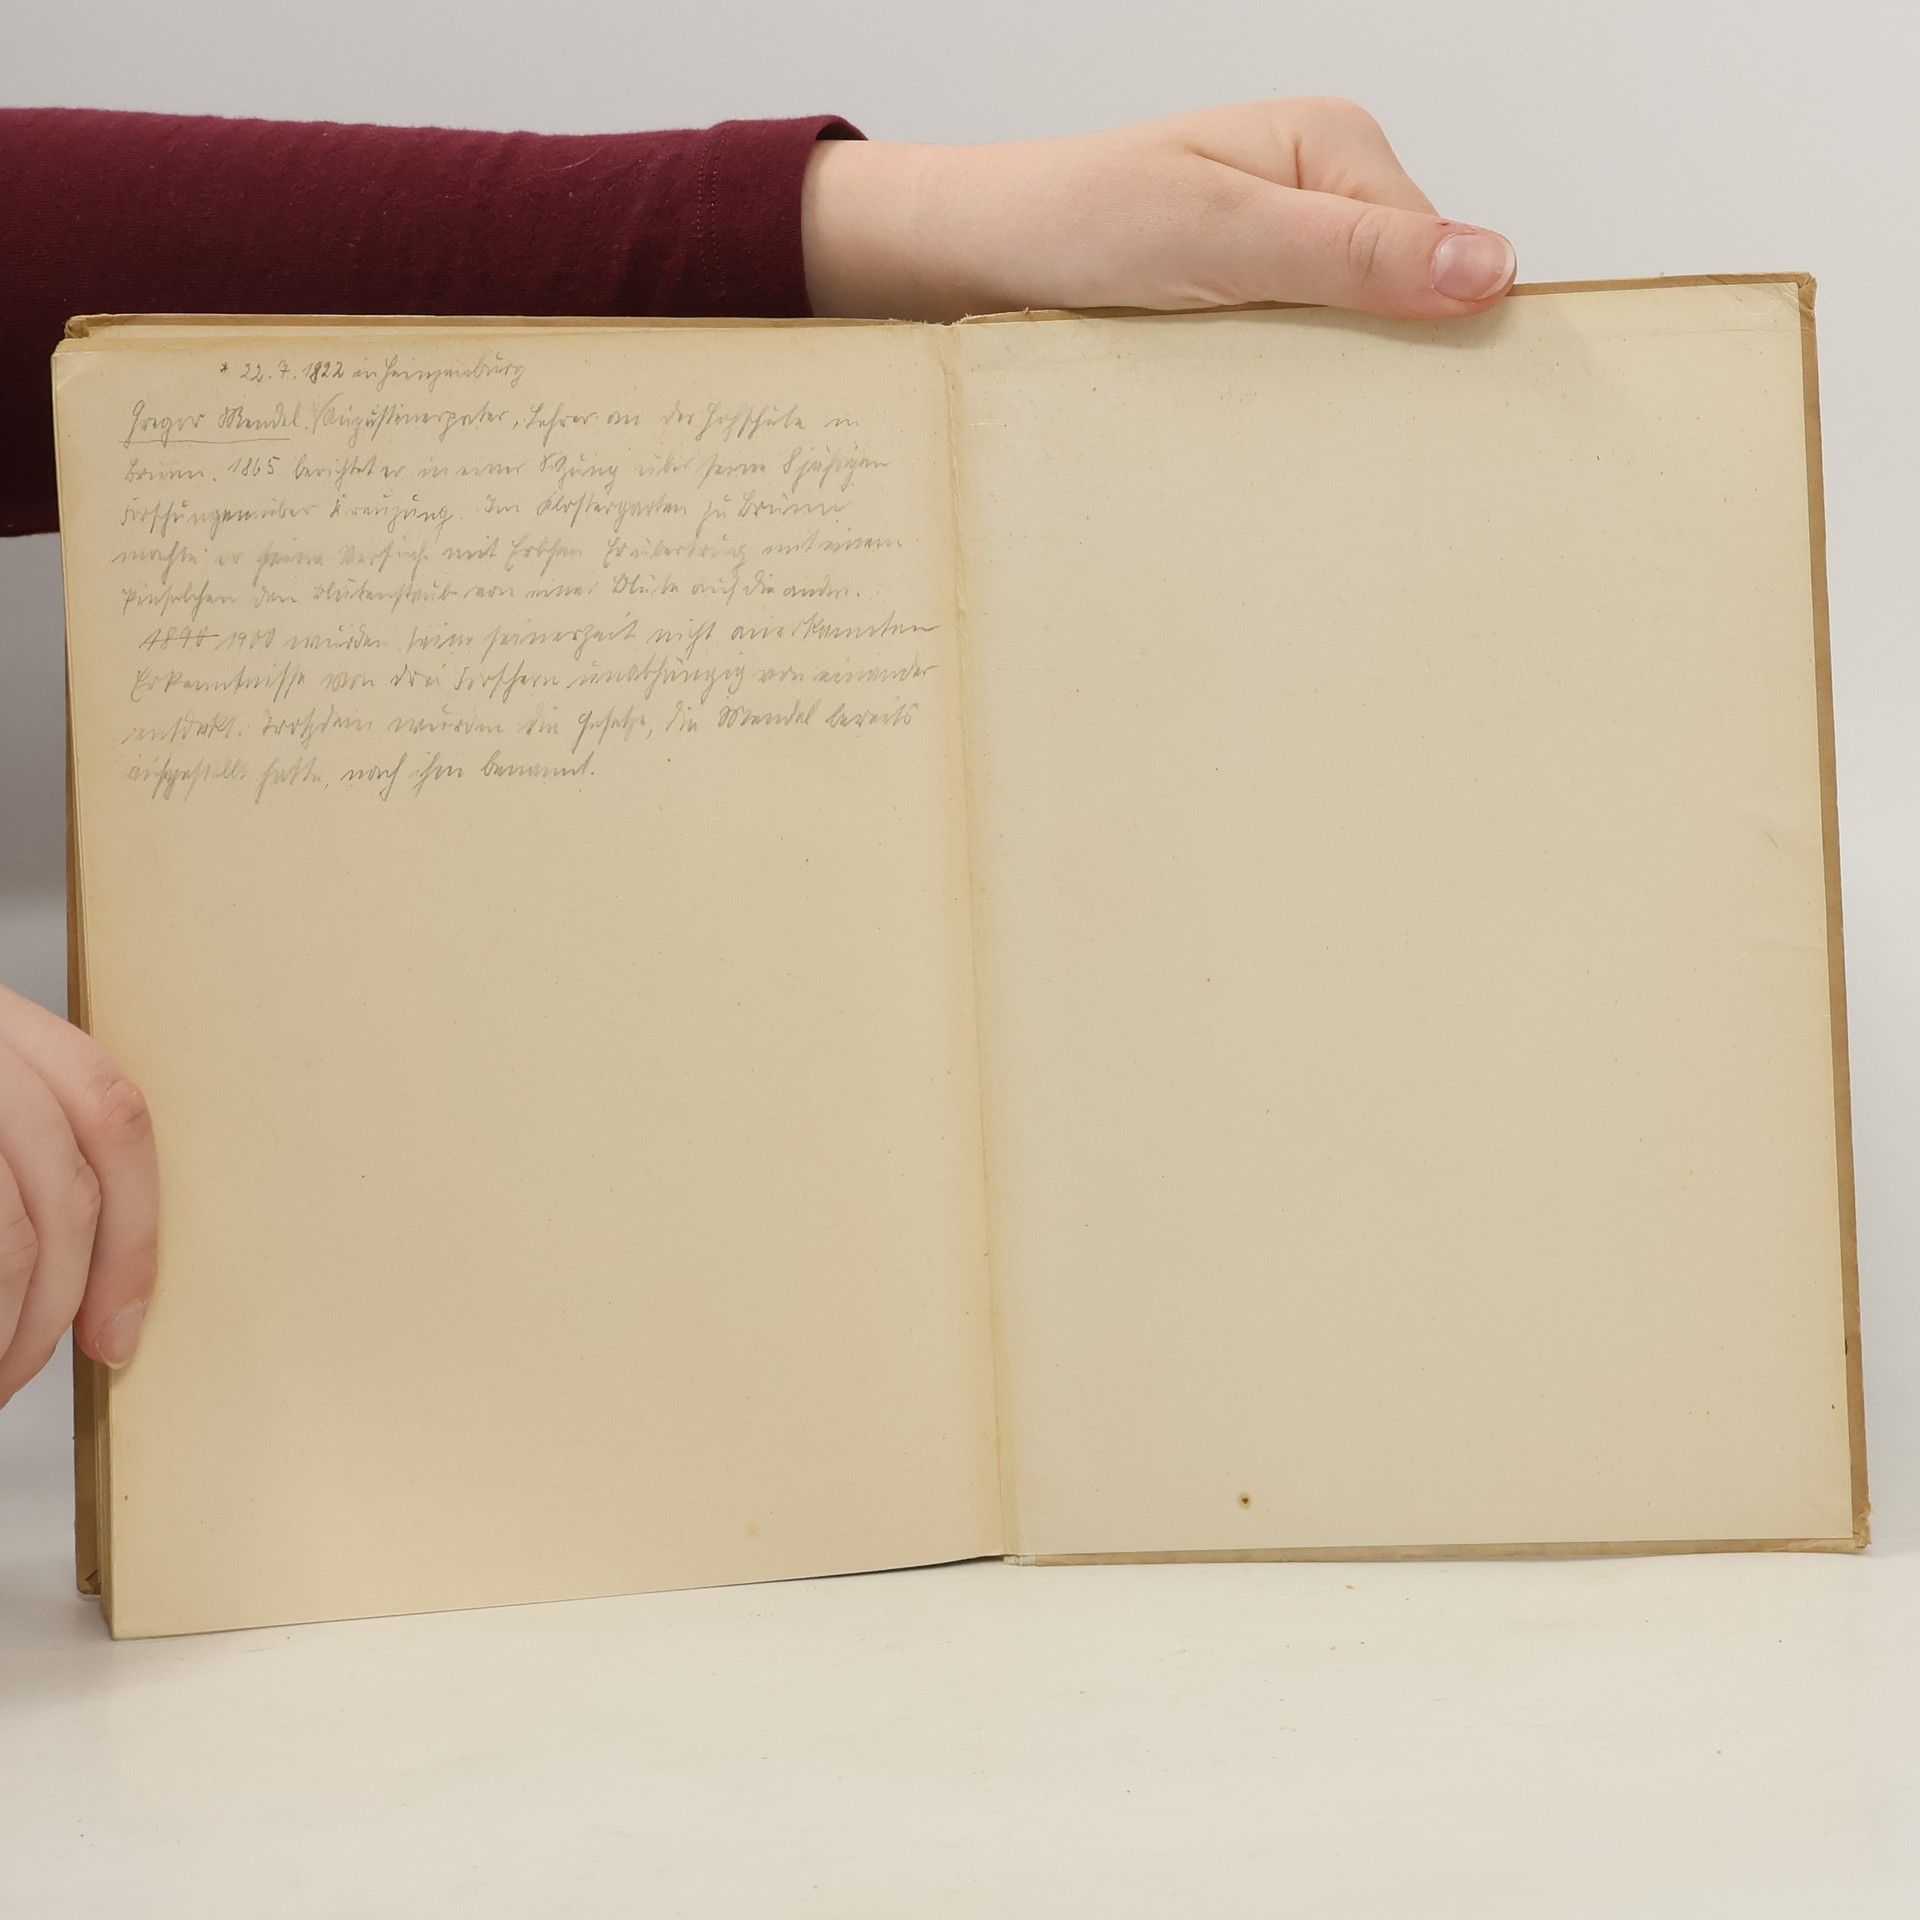 * 22. 7. 1822 in Heinzendorf
Gregor Mendel. Augustinerpater, Lehrer an der Hohschule in
Brünn. 1865 berichtet er in einer Sitzung über seine 8 jährigen
Forschungen über Kreuzung. Im Klostergarten zu Brünn
machte er seine Versuche mit Erbsen Er übertrug mit einem
Pinselchen den Blütenstaub von einer Blüte auf die andre.
1900 wurden seine seinerzeit nicht anerkannten
Erkenntnisse von drei Forschern unabhängig von einander
entdekt. Trotzdem wurden die Gesetze, die Mendel bereits
aufgestellt hatte, nach ihm benannt.